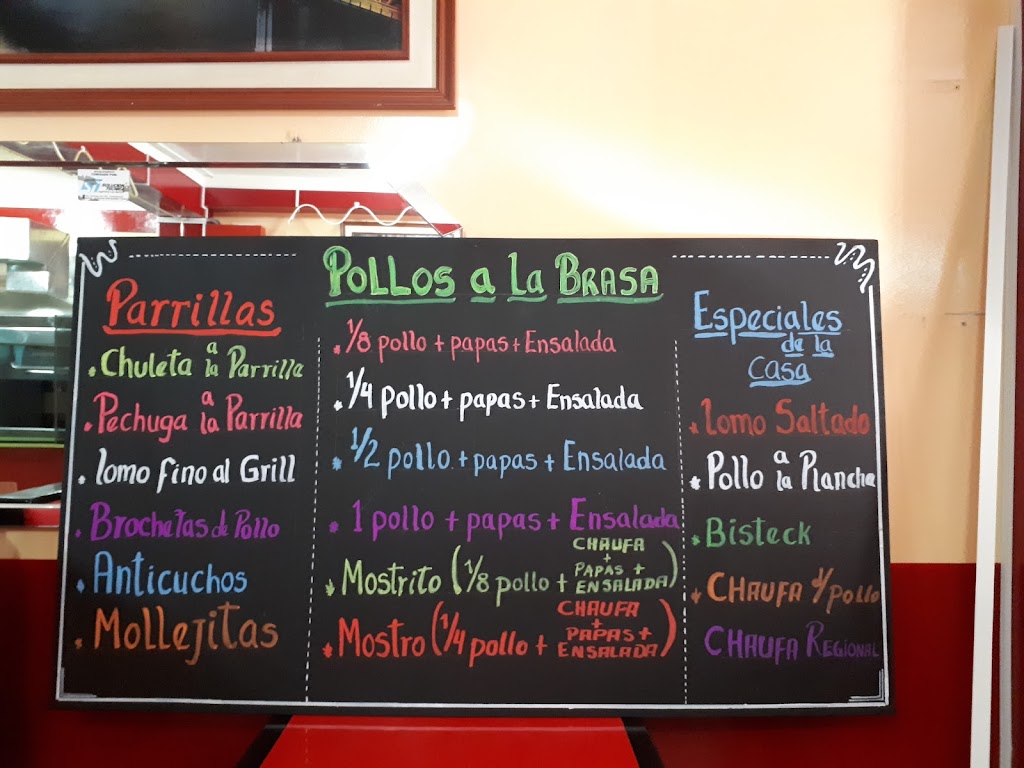 Parrillas
. Chuleta a la Parrilla
. Pechuga a la Parrilla
. lomo fino al Grill
. Brochetas de Pollo
. Anticuchos
. Mollejitas
Pollos a la Brasa
. 1/8 pollo + papas + Ensalada
* 1/4 pollo + papas + Ensalada
* 1/2 pollo + papas + Ensalada
* 1 pollo + papas + Ensalada
* Mostrito (1/8 pollo + CHAUFA + PAPAS + ENSALADA)
* Mostro (1/4 pollo + CHAUFA + PAPAS + ENSALADA)
Especiales
de la
Casa
* lomo Saltado
* Pollo a la Plancha
* Bisteck
* CHAUFA d/ pollo
CHAUFA REGIONAL